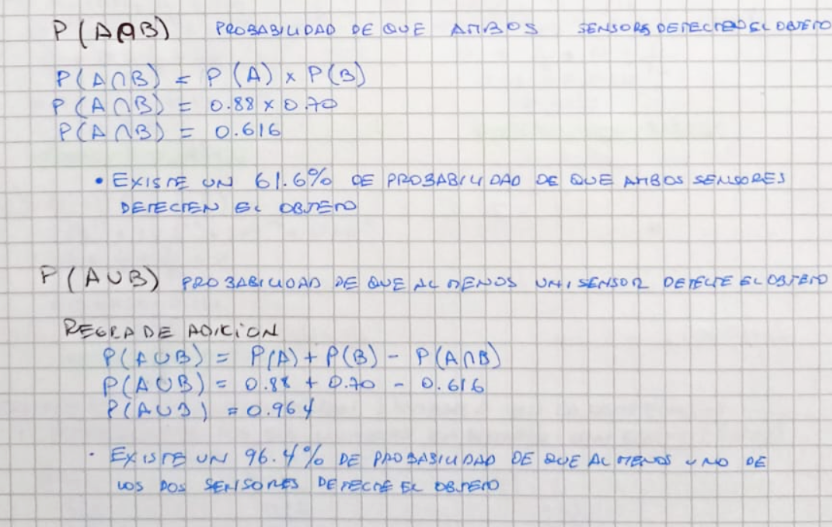 P(A∩B) PROBABILIDAD DE QUE AMBOS SENSORS DETECTEN EL OBJETO
P(A∩B) = P(A) x P(B)
P(A∩B) = 0.88 x 0.70
P(A∩B) = 0.616
• EXISTE UN 61.6% DE PROBABILIDAD DE QUE AMBOS SENSORES
DETECTEN EL OBJETO
P(A∪B) PROBABILIDAD DE QUE AL MENOS UN SENSOR DETECTE EL OBJETO
REGRA DE ADICION
P(A∪B) = P(A) + P(B) - P(A∩B)
P(A∪B) = 0.88 + 0.70 - 0.616
P(A∪B) = 0.964
• EXISTE UN 96.4% DE PROBABILIDAD DE QUE AL MENOS UNO DE
LOS DOS SENSORES DETECTE EL OBJETO